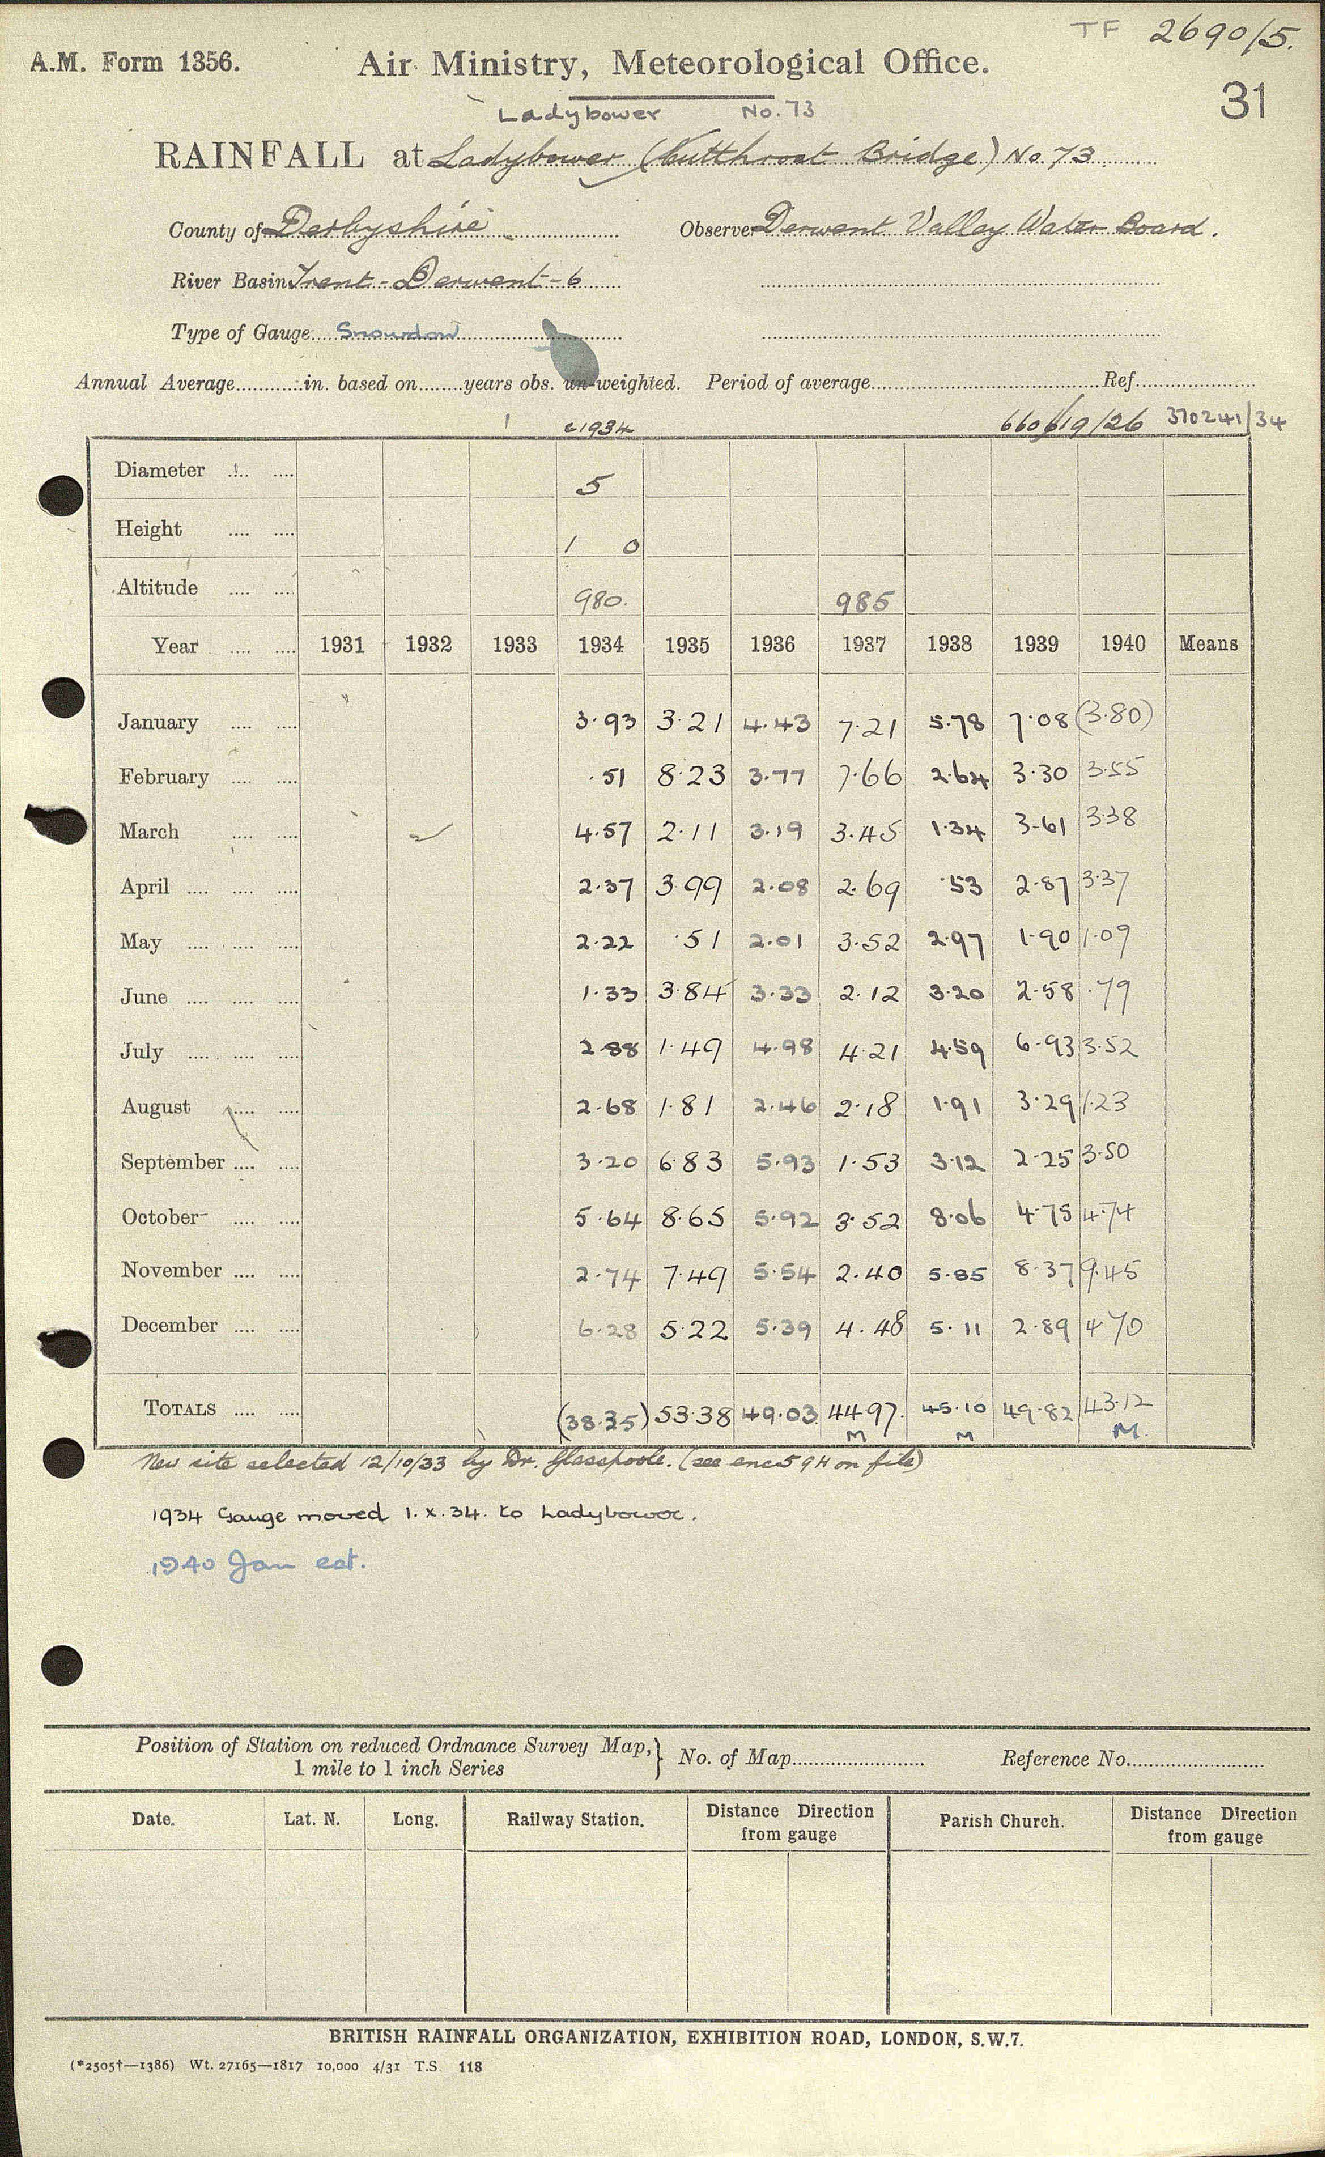 TF 2690/5.
A.M. Form 1356. Air Ministry, Meteorological Office.
31
Ladybower No. 73
RAINFALL at Ladybower (Cutthroat Bridge) No 73
County of Derbyshire Observer Derwent Valley Water Board.
River Basin Trent - Derwent - 6
Type of Gauge Snowdon
Annual Average in. based on years obs. un-weighted. Period of average Ref.
c1934 660/619/26 370241/34
Diameter 5
Height 1 0
Altitude 980. 985
Year 1931 1932 1933 1934 1935 1936 1937 1938 1939 1940 Means
January 3.93 3.21 4.43 7.21 5.78 7.08 (3.80)
February .51 8.23 3.77 7.66 2.64 3.30 3.55
March 4.57 2.11 3.19 3.45 1.34 3.61 3.38
April 2.37 3.99 2.08 2.69 .53 2.87 3.37
May 2.22 .51 2.01 3.52 2.97 1.90 1.09
June 1.33 3.84 3.33 2.12 3.20 2.58 .79
July 2.88 1.49 4.98 4.21 4.59 6.93 3.52
August 2.68 1.81 2.46 2.18 1.91 3.29 1.23
September 3.20 6.83 5.93 1.53 3.12 2.25 3.50
October 5.64 8.65 5.92 3.52 8.06 4.75 4.74
November 2.74 7.49 5.54 2.40 5.85 8.37 9.45
December 6.28 5.22 5.39 4.48 5.11 2.89 4.70
TOTALS (38.35) 53.38 49.03 44.97 45.10 49.82 43.12
M M M.
New site selected 12/10/33 by Dr. Glasspoole. (see enc 59H on file)
1934 Gauge moved 1.X.34. to Ladybower.
1940 Jan est.
Position of Station on reduced Ordnance Survey Map, 1 mile to 1 inch Series } No. of Map Reference No.
Date. Lat. N. Long. Railway Station. Distance Direction from gauge Parish Church. Distance Direction from gauge
BRITISH RAINFALL ORGANIZATION, EXHIBITION ROAD, LONDON, S.W.7.
(*2505†—1386) Wt. 27165—1817 10,000 4/31 T.S. 118